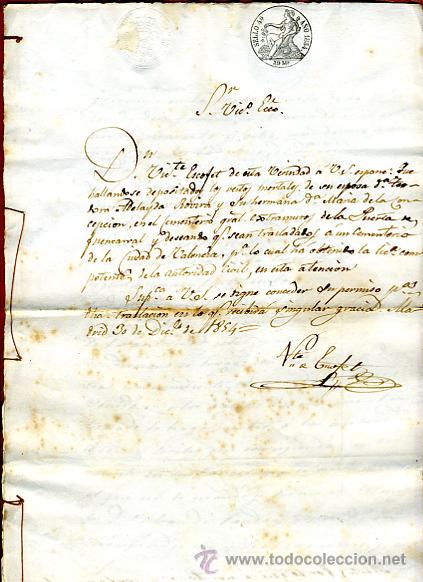 SELLO 4º AÑO 1854
40 Ms
Sr
Vicº. Ecco.
Dn
Dn. Victe. Escofet de esta Vecindad a V.S. espone: Que
hallandose depositados los restos mortales de su esposa Da. Teo-
dora Adelayda Rovira y su hermana Da. Maria de la Con-
cepcion, en el cementerio gral. extramuros de la Puerta de
Fuencarral y deseando qe. sean trasladados a un cementerio
de la Ciudad de Valencia, pa. lo cual ha obtenido la lica. com-
petente de la autoridad Civil, en esta atencion
Supca. a V.S. se digne conceder su permiso pa.
dha. traslacion en lo qe. recibirá singular gracia. Ma-
drid 30 de Dice. de 1854=
Vte. Escofet
www.todocoleccion.net